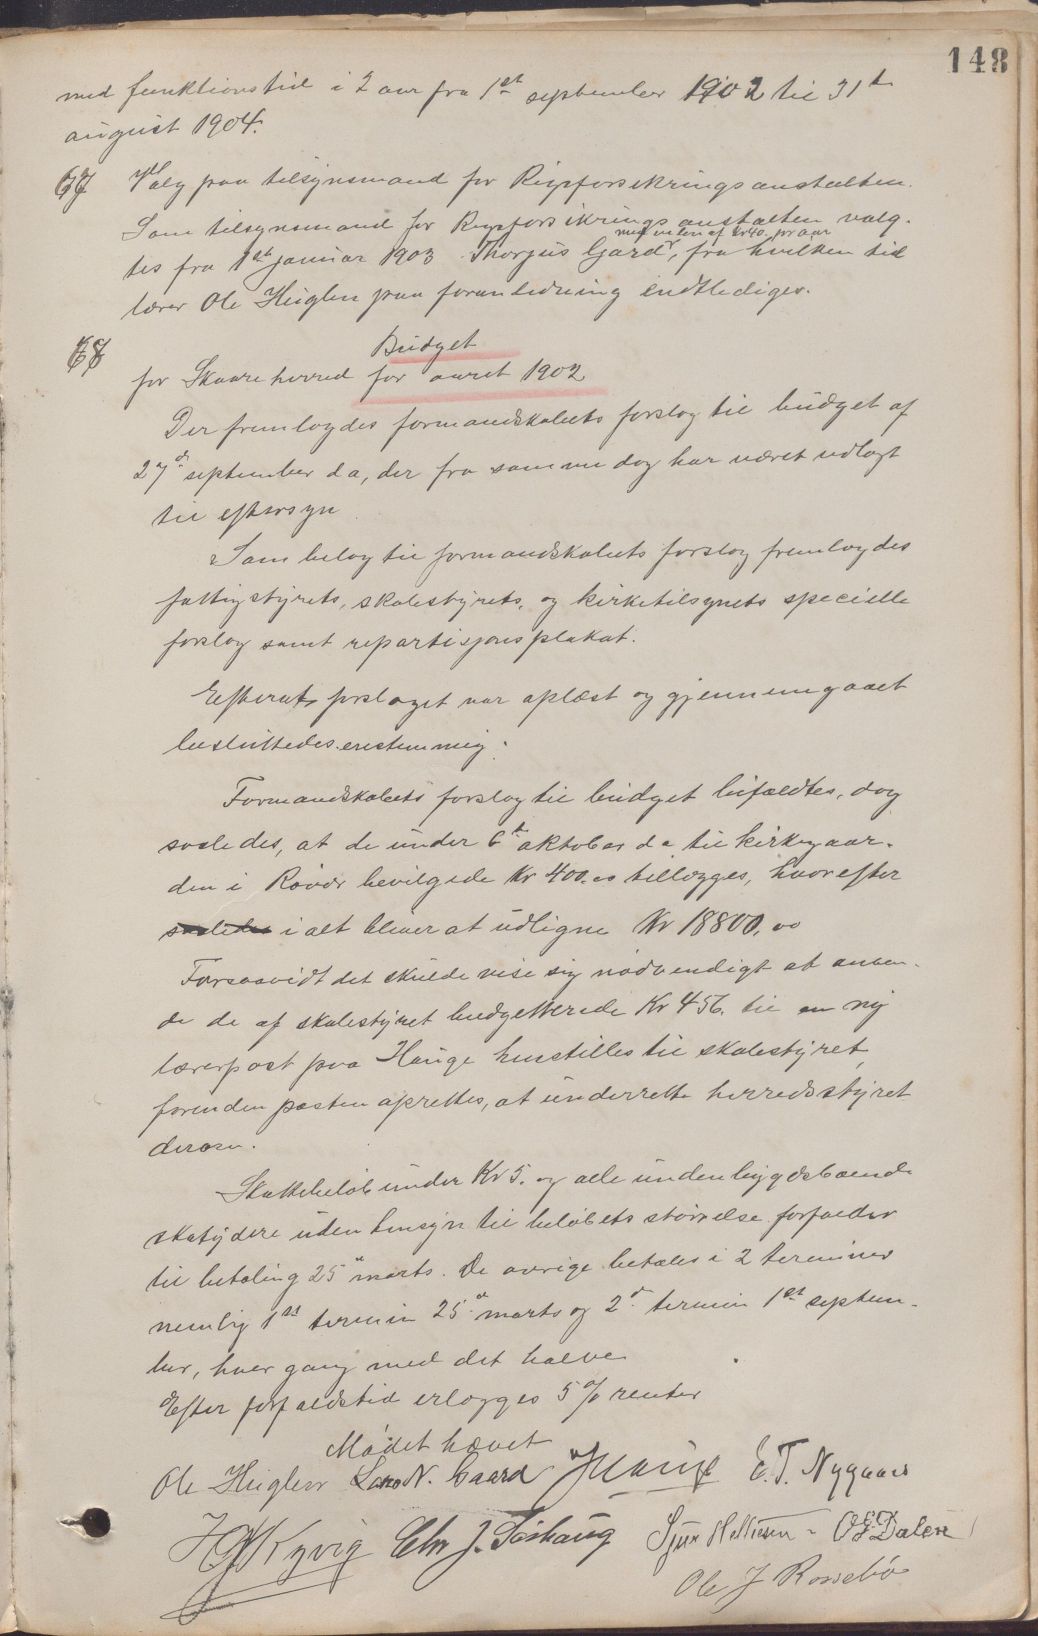 148
med funktionstid i 2 aar fra 1st september 1902 til 31te
august 1904.
67 Valg paa tilsynsmand for Rugforsikringsanstalten.
Som tilsynsmand for anstalten valg-
af kr 40. pr aar
tes fra 1st januar 1903 Thorgius Gard, fra hvilken tid
lærer Ole Hüglen paa foranledning endtlediges.
68 Budget
for Skaare herred for aaret 1902
Der fremlagdes formandskabets forslag til budget af
27de september d a, der fra samme dag har været udlagt
til eftersyn
Som bilag til formandskabets forslag fremlagdes
fattigstyrets, skolestyrets, og kirketilsynets specielle
forslag samt repartisjonsplakat.
Efterat forslaget var oplæst og gjennemgaaet
besluttedes enstemmig:
Formandskabets forslag til budget bifaldtes, dog
saaledes, at de under 6te oktober d a til kirkegaar-
den i Røvær bevilgede Kr 400.00 tillægges, hvorefter
saaledes i alt bliver at udligne Kr 18800,00
Forsaavidt det skulde vise sig nødvendigt at anven-
de de af skolestyret budgetterede Kr 456. til en ny
lærerpost paa Hauge henstilles til skolestyret,
forinden posten oprettes, at underrette herredsstyret
derom.
Skattebeløb under Kr 5. og alle udenbygdsboende
skatydere uden hensyn til beløbets størrelse forfalder
til betaling 25de marts. De øvrige betales i 2 terminer
nemlig 1st termin 25de marts og 2den termin 1st septem-
ber, hver gang med det halve
Efter forfaldstid erlægges 5 % renter
Mødet hævet
Ole Hüglen Lars N. Gaard E. T. Nygaard
Kyvig Chr J. Sørhaug Sjur Helliesen O E Dalen
Ole J Rossebø